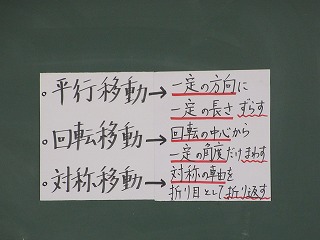 。平行移動→一定の方向に
一定の長さずらす
。回転移動→回転の中心から
一定の角度だけまわす
。対称移動→対称の軸を
折り目として折り返す